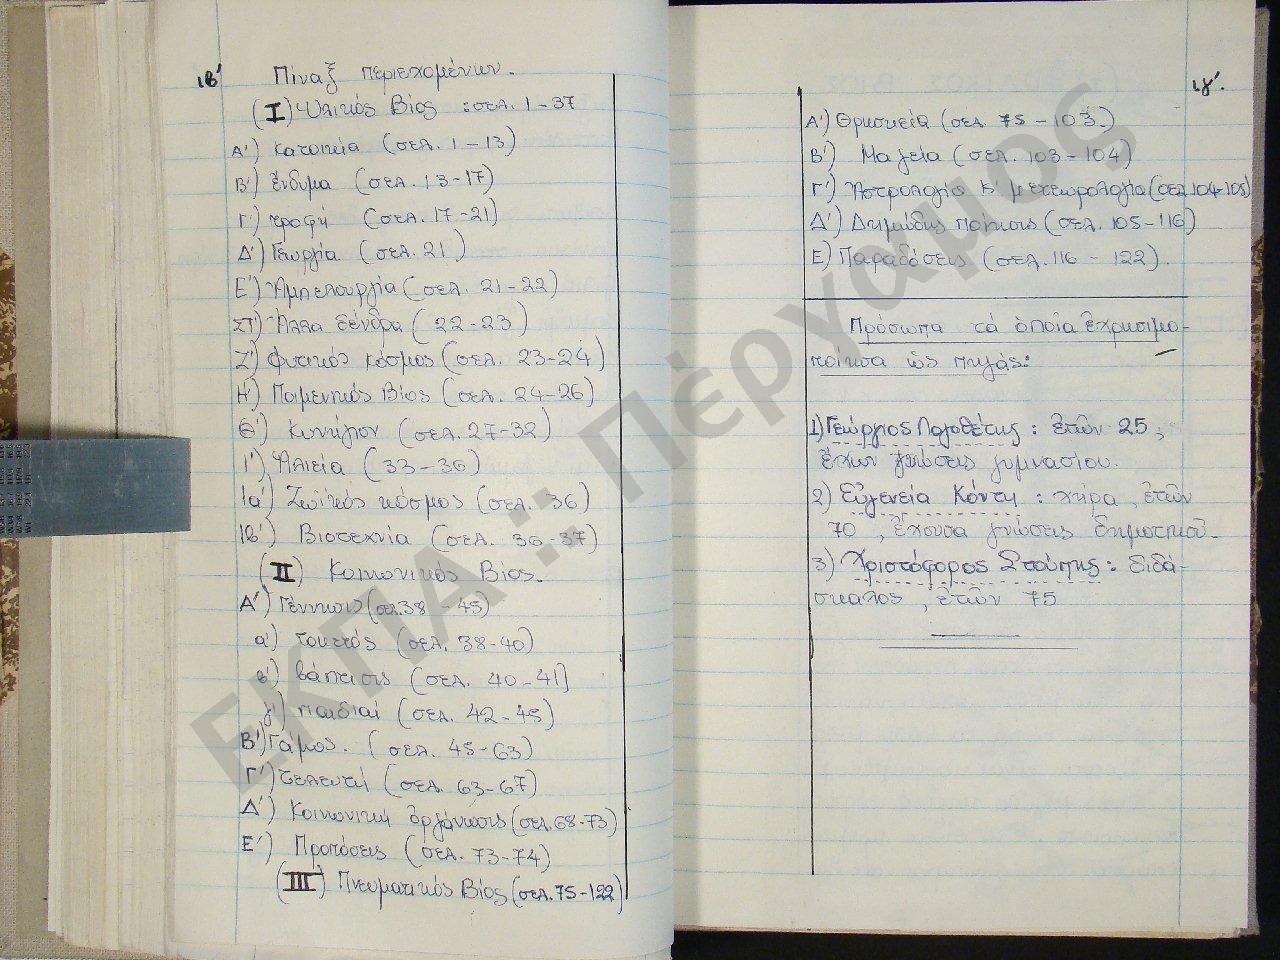 ιβ'
Πίναξ περιεχομένων.
(I) Ὑλικός Βίος : σελ. 1-37
Α') Κατοικία (σελ. 1-13)
Β') ἔνδυμα (σελ. 13-17)
Γ') τροφή (σελ. 17-21)
Δ') Γεωργία (σελ. 21)
Ε') Ἀμπελουργία (σελ. 21-22)
ΣΤ') Ἄλλα δένδρα (22-23)
Ζ') Φυτικός κόσμος (σελ. 23-24)
Η') Ποιμενικός Βίος (σελ. 24-26)
Θ') Κυνήγιον (σελ. 27-32)
Ι') Ἁλιεία (33-36)
Ια') Ζωϊκός κόσμος (σελ. 36)
ΙΒ') Βιοτεχνία (σελ. 36-37)
(II) Κοινωνικός Βίος.
Α') Γέννησις (σελ. 38-45)
α') τοκετός (σελ. 38-40)
β') βάπτισις (σελ. 40-41)
γ') παιδιαί (σελ. 42-45)
Β') Γάμος. (σελ. 45-63)
Γ') τελευτή (σελ. 63-67)
Δ') Κοινωνική ὀργάνωσις (σελ. 68-73)
Ε') Προπόσεις (σελ. 73-74)
(III) Πνευματικός Βίος (σελ. 75-122)
ιγ'.
Α') Θρησκεία (σελ. 75-103.)
Β') Μαγεία (σελ. 103-104)
Γ') Ἀστρολογία κ' μετεωρολογία (σελ. 104-105)
Δ') Δημώδης ποίησις (σελ. 105-116)
Ε) Παραδόσεις (σελ. 116-122).
Πρόσωπα τά ὁποῖα ἐχρησιμο-
ποίησα ὡς πηγάς:
1) Γεώργιος Λογοθέτης : ἐτῶν 25,
ἔχων γνώσεις γυμνασίου.
2) Εὐγενεία Κόντη : χήρα, ἐτῶν
70, ἔχουσα γνώσεις δημοτικοῦ.
3) Χριστόφορος Σπούπης : διδά-
σκαλος, ἐτῶν 75
ΕΚΠΑ :: Πέργαμος